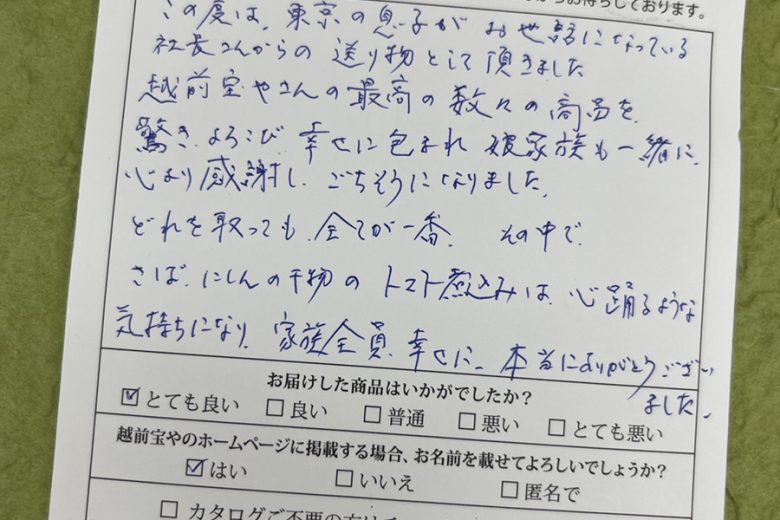 お待ちしております。
この度は、東京の息子がお世話になっている
社長さんからの送り物として頂きました
越前宝やさんの最高の数々の商品を
驚き、よろこび、幸せに包まれ娘家族も一緒に、
心より感謝し、ごちそうになりました、
どれを取っても、全てが一番、その中で、
さば、にしんの干物のトマト煮込みは、心踊るような
気持ちになり、家族全員、幸せに、本当にありがとうござい
ました、
お届けした商品はいかがでしたか?
☑とても良い □良い □普通 □悪い □とても悪い
越前宝やのホームページに掲載する場合、お名前を載せてよろしいでしょうか?
☑はい □いいえ □匿名で
□カタログご不要の方は